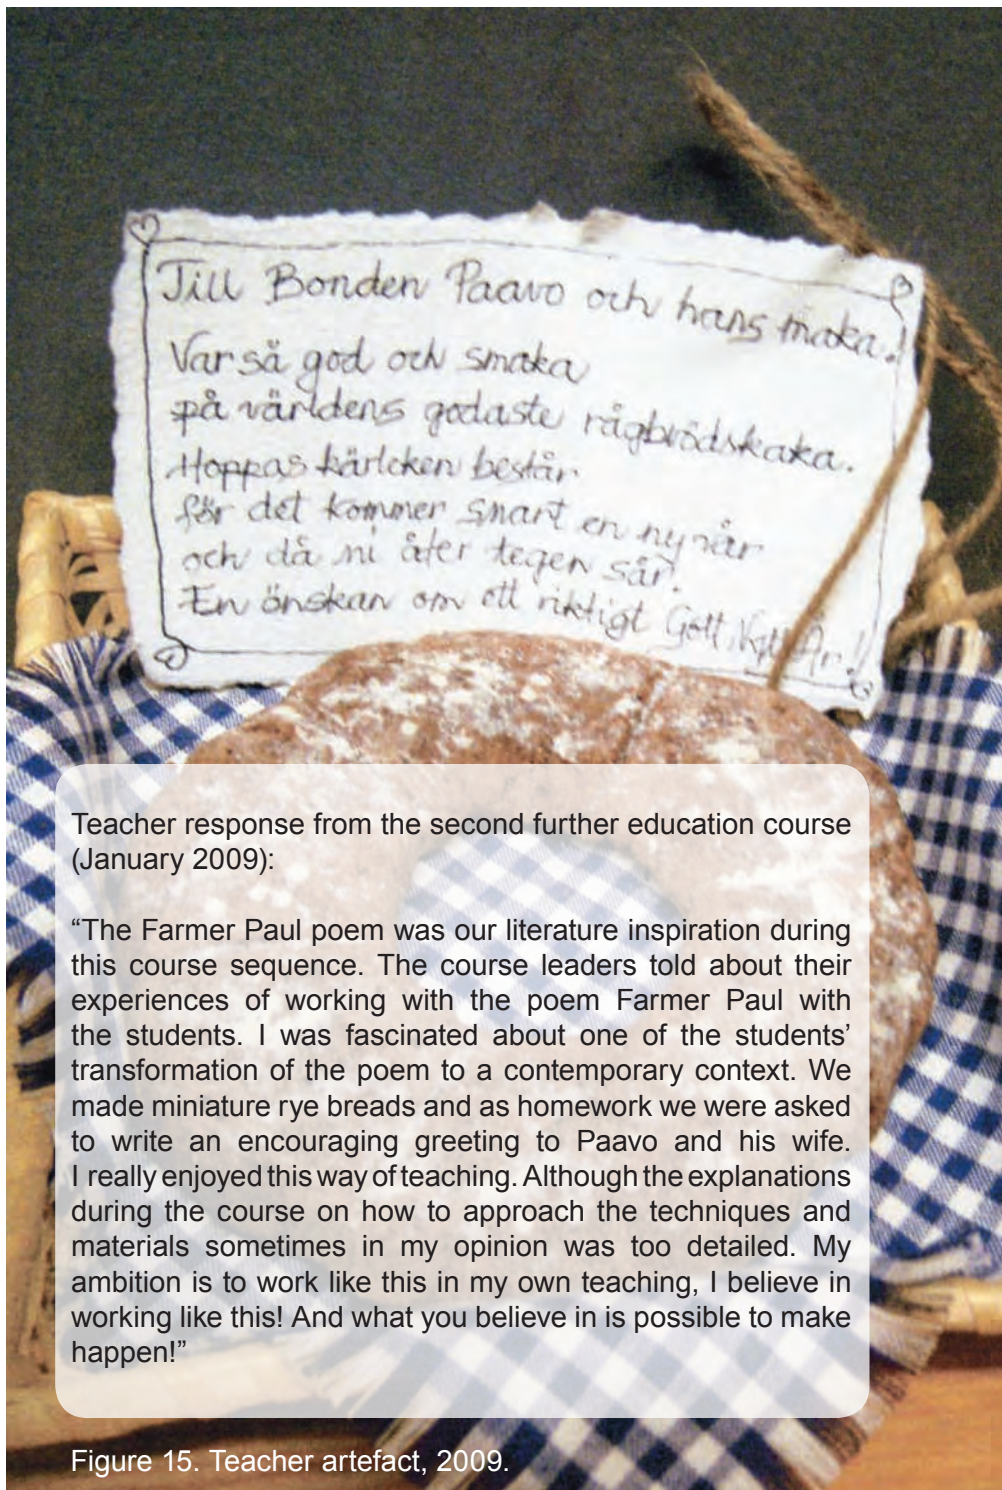 Till Bonden Paavo och hans maka!
Var så god och smaka
på världens godaste rågbrödskaka.
Hoppas kärleken består
för det kommer snart en ny vår
och då ni åter tegen sår.
En önskan om ett riktigt Gott Nytt År!
Teacher response from the second further education course
(January 2009):
“The Farmer Paul poem was our literature inspiration during
this course sequence. The course leaders told about their
experiences of working with the poem Farmer Paul with
the students. I was fascinated about one of the students’
transformation of the poem to a contemporary context. We
made miniature rye breads and as homework we were asked
to write an encouraging greeting to Paavo and his wife.
I really enjoyed this way of teaching. Although the explanations
during the course on how to approach the techniques and
materials sometimes in my opinion was too detailed. My
ambition is to work like this in my own teaching, I believe in
working like this! And what you believe in is possible to make
happen!”
Figure 15. Teacher artefact, 2009.